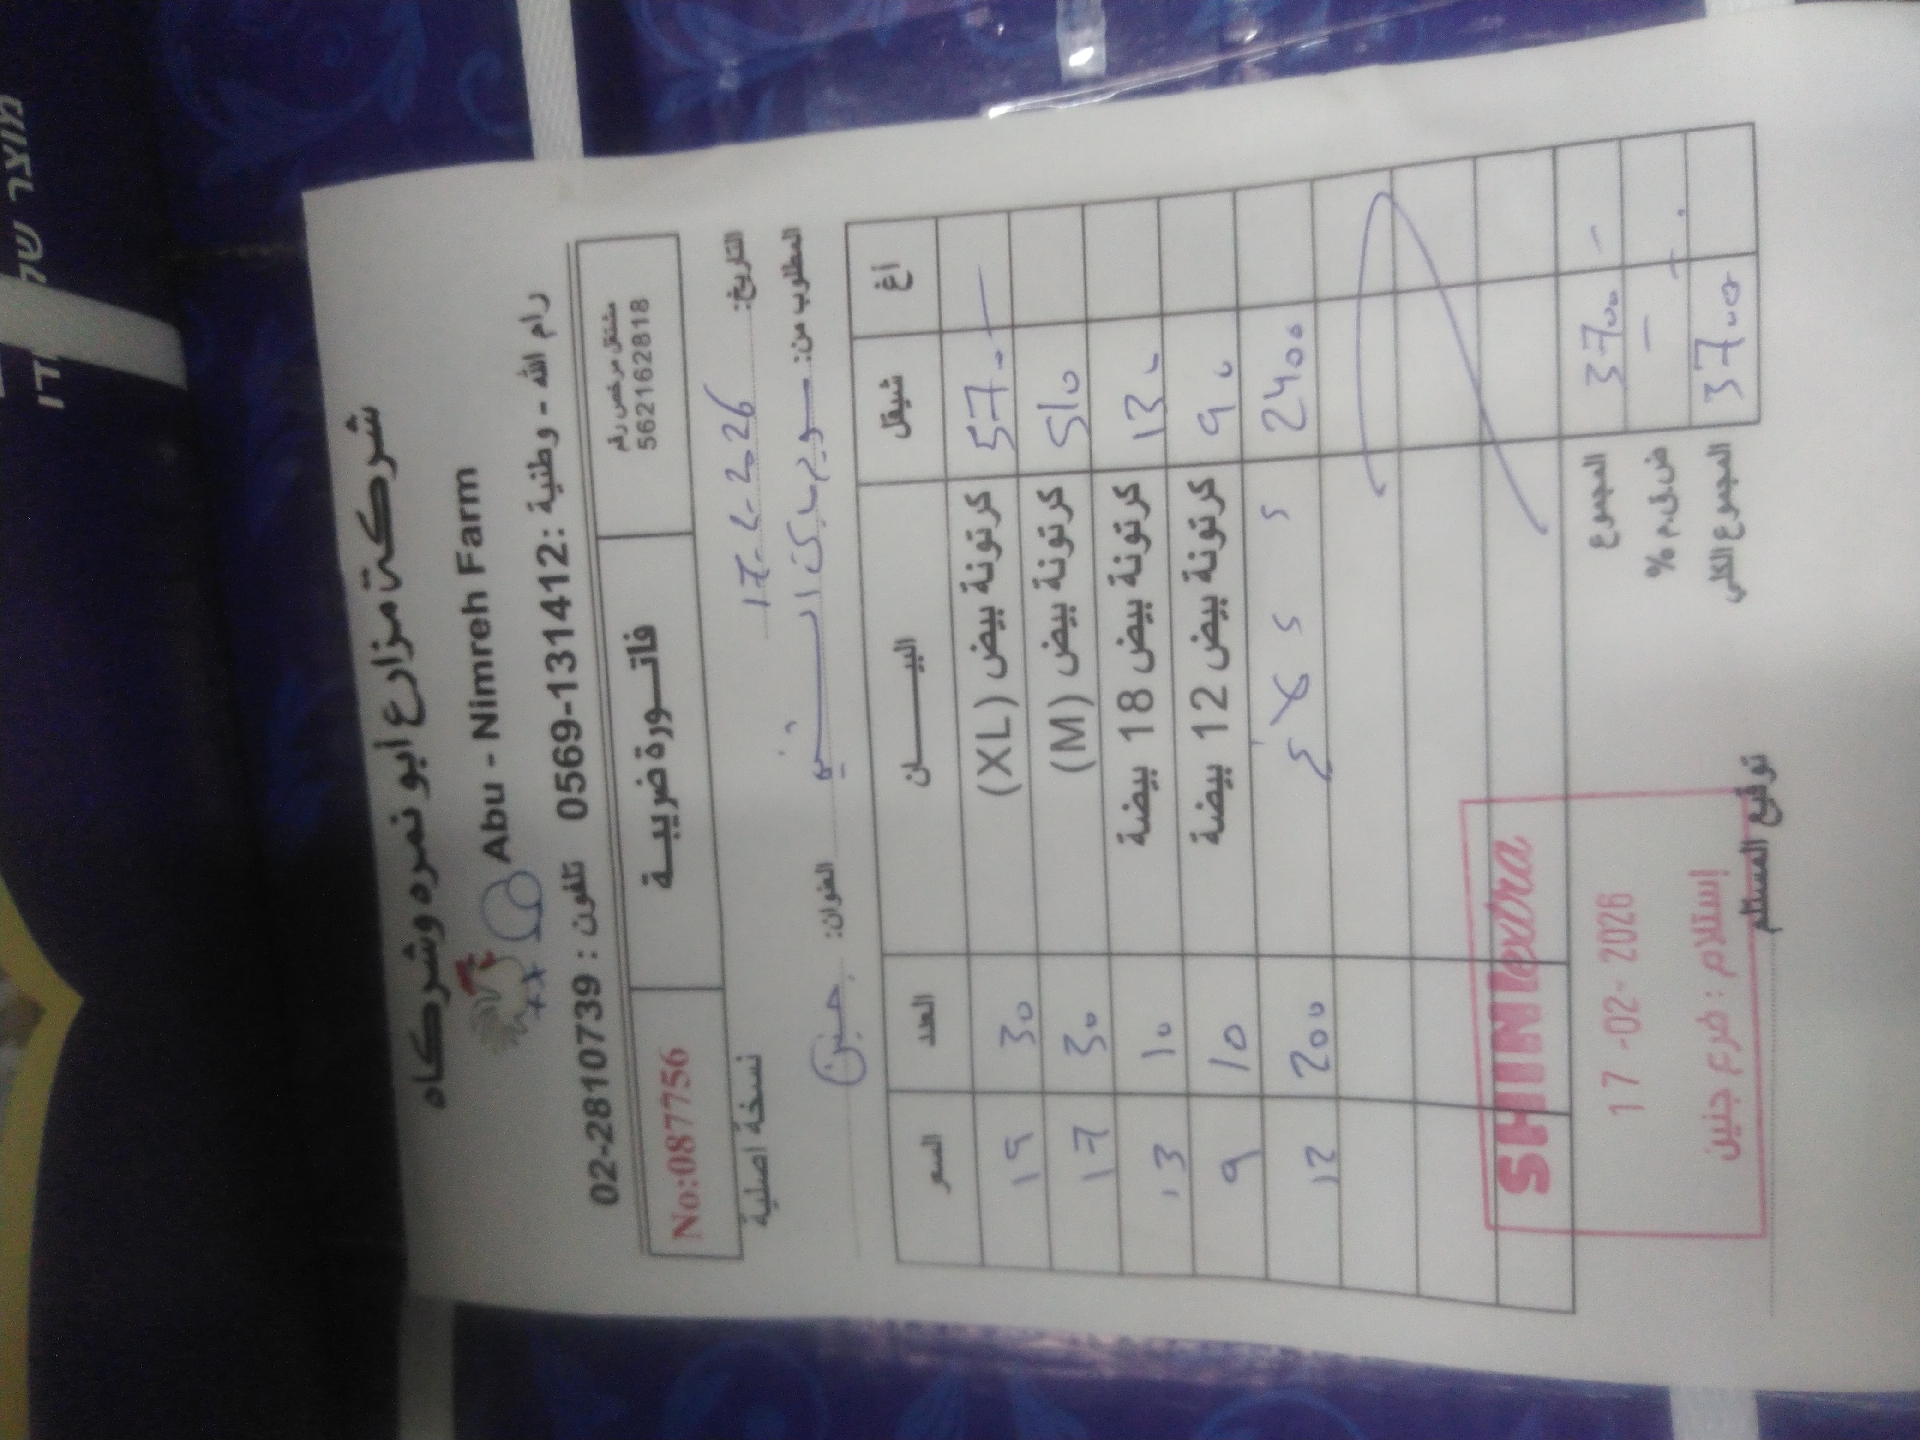 شركة مزارع ابو نمره وشركاه
Abu - Nimreh Farm
رام الله - وطنية : 0569-131412 تلفون : 02-2810739
مشتغل مرخص رقم
562162818
فاتـــورة ضريبيـــة
No:087756
التاريخ: 17-2-2026
نسخة اصلية
المطلوب من:
العنوان: جنين
أغ شيقل البيـــــــان العدد السعر
570 كرتونة بيض (XL) 30 19
510 كرتونة بيض (M) 30 17
130 كرتونة بيض 18 بيضة 10 13
90 كرتونة بيض 12 بيضة 10 9
2400 200 12
المجموع 3700
ض.ق.م %
المجموع الكلي 3700
SHINI extra
17 -02- 2026
إستلام : فرع جنين
توقيع المستلم
מוצר של